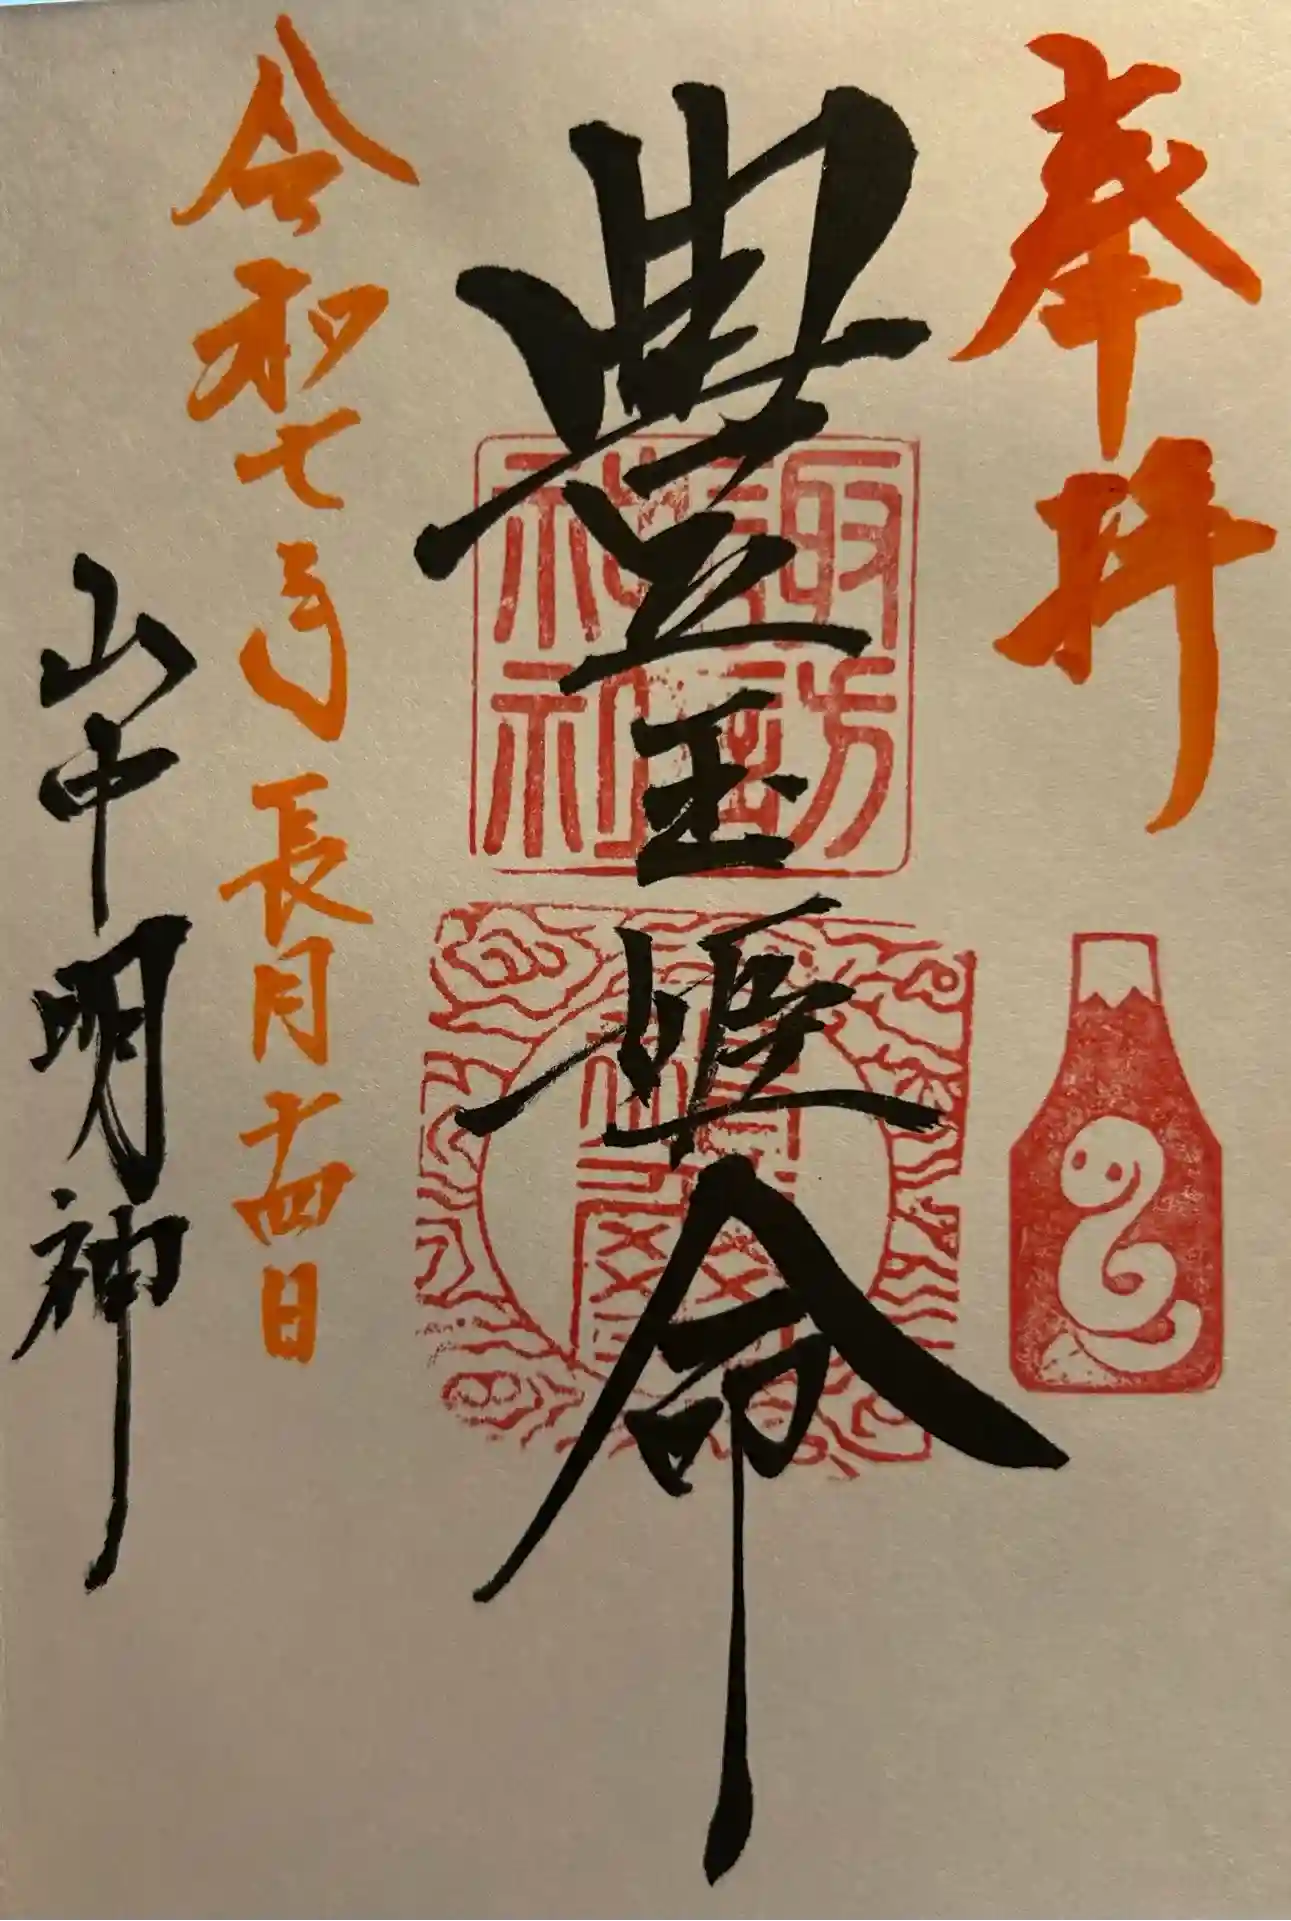 奉拝
豊玉姫命
令和七年長月十四日
山中明神